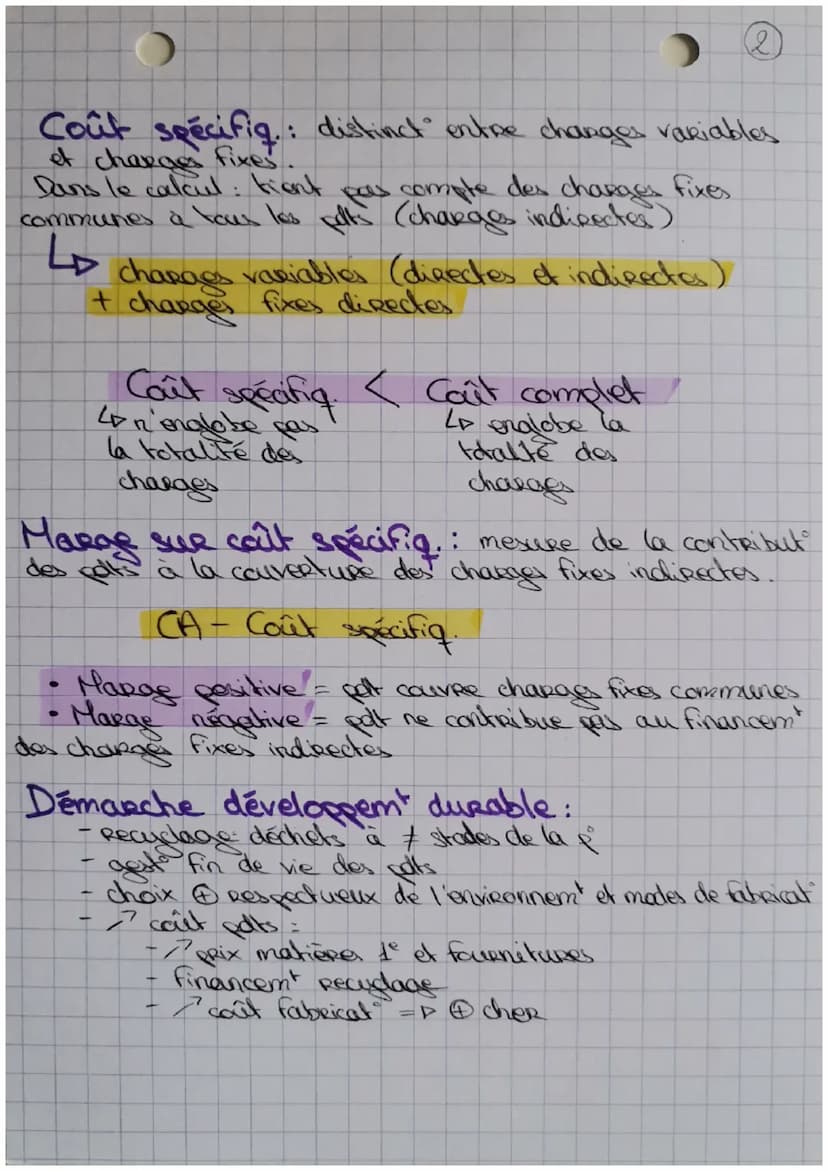 2
Coût spécifiq.: distinct° entre charges variables
et charges fixes.
Dans le calcul : tient pas compte des charges fixes
communes à tous les pdts (charges indirectes)
↳ charges variables (directes et indirectes)
+ charges fixes directes
Coût spécifiq. < Coût complet
↳ n'englobe pas
la totalité des
charges
↳ englobe la
totalité des
charges
Marge sur coût spécifiq. : mesure de la contribut°
des pdts à la couverture des charges fixes indirectes.
CA - Coût spécifiq.
• Marge positive = pdt couvre charges fixes communes
• Marge négative = pdt ne contribue pas au financemt
des charges fixes indirectes
Démarche développemt durable :
- Recyclage déchets à ≠ stades de la p°
- gest° fin de vie des pdts
- choix ⊕ respectueux de l'environnemt et modes de fabricat°
- ↗ coût pdts :
- ↗ prix matières 1e et fournitures
- financemt recyclage
- ↗ coût fabricat° => ⊕ cher